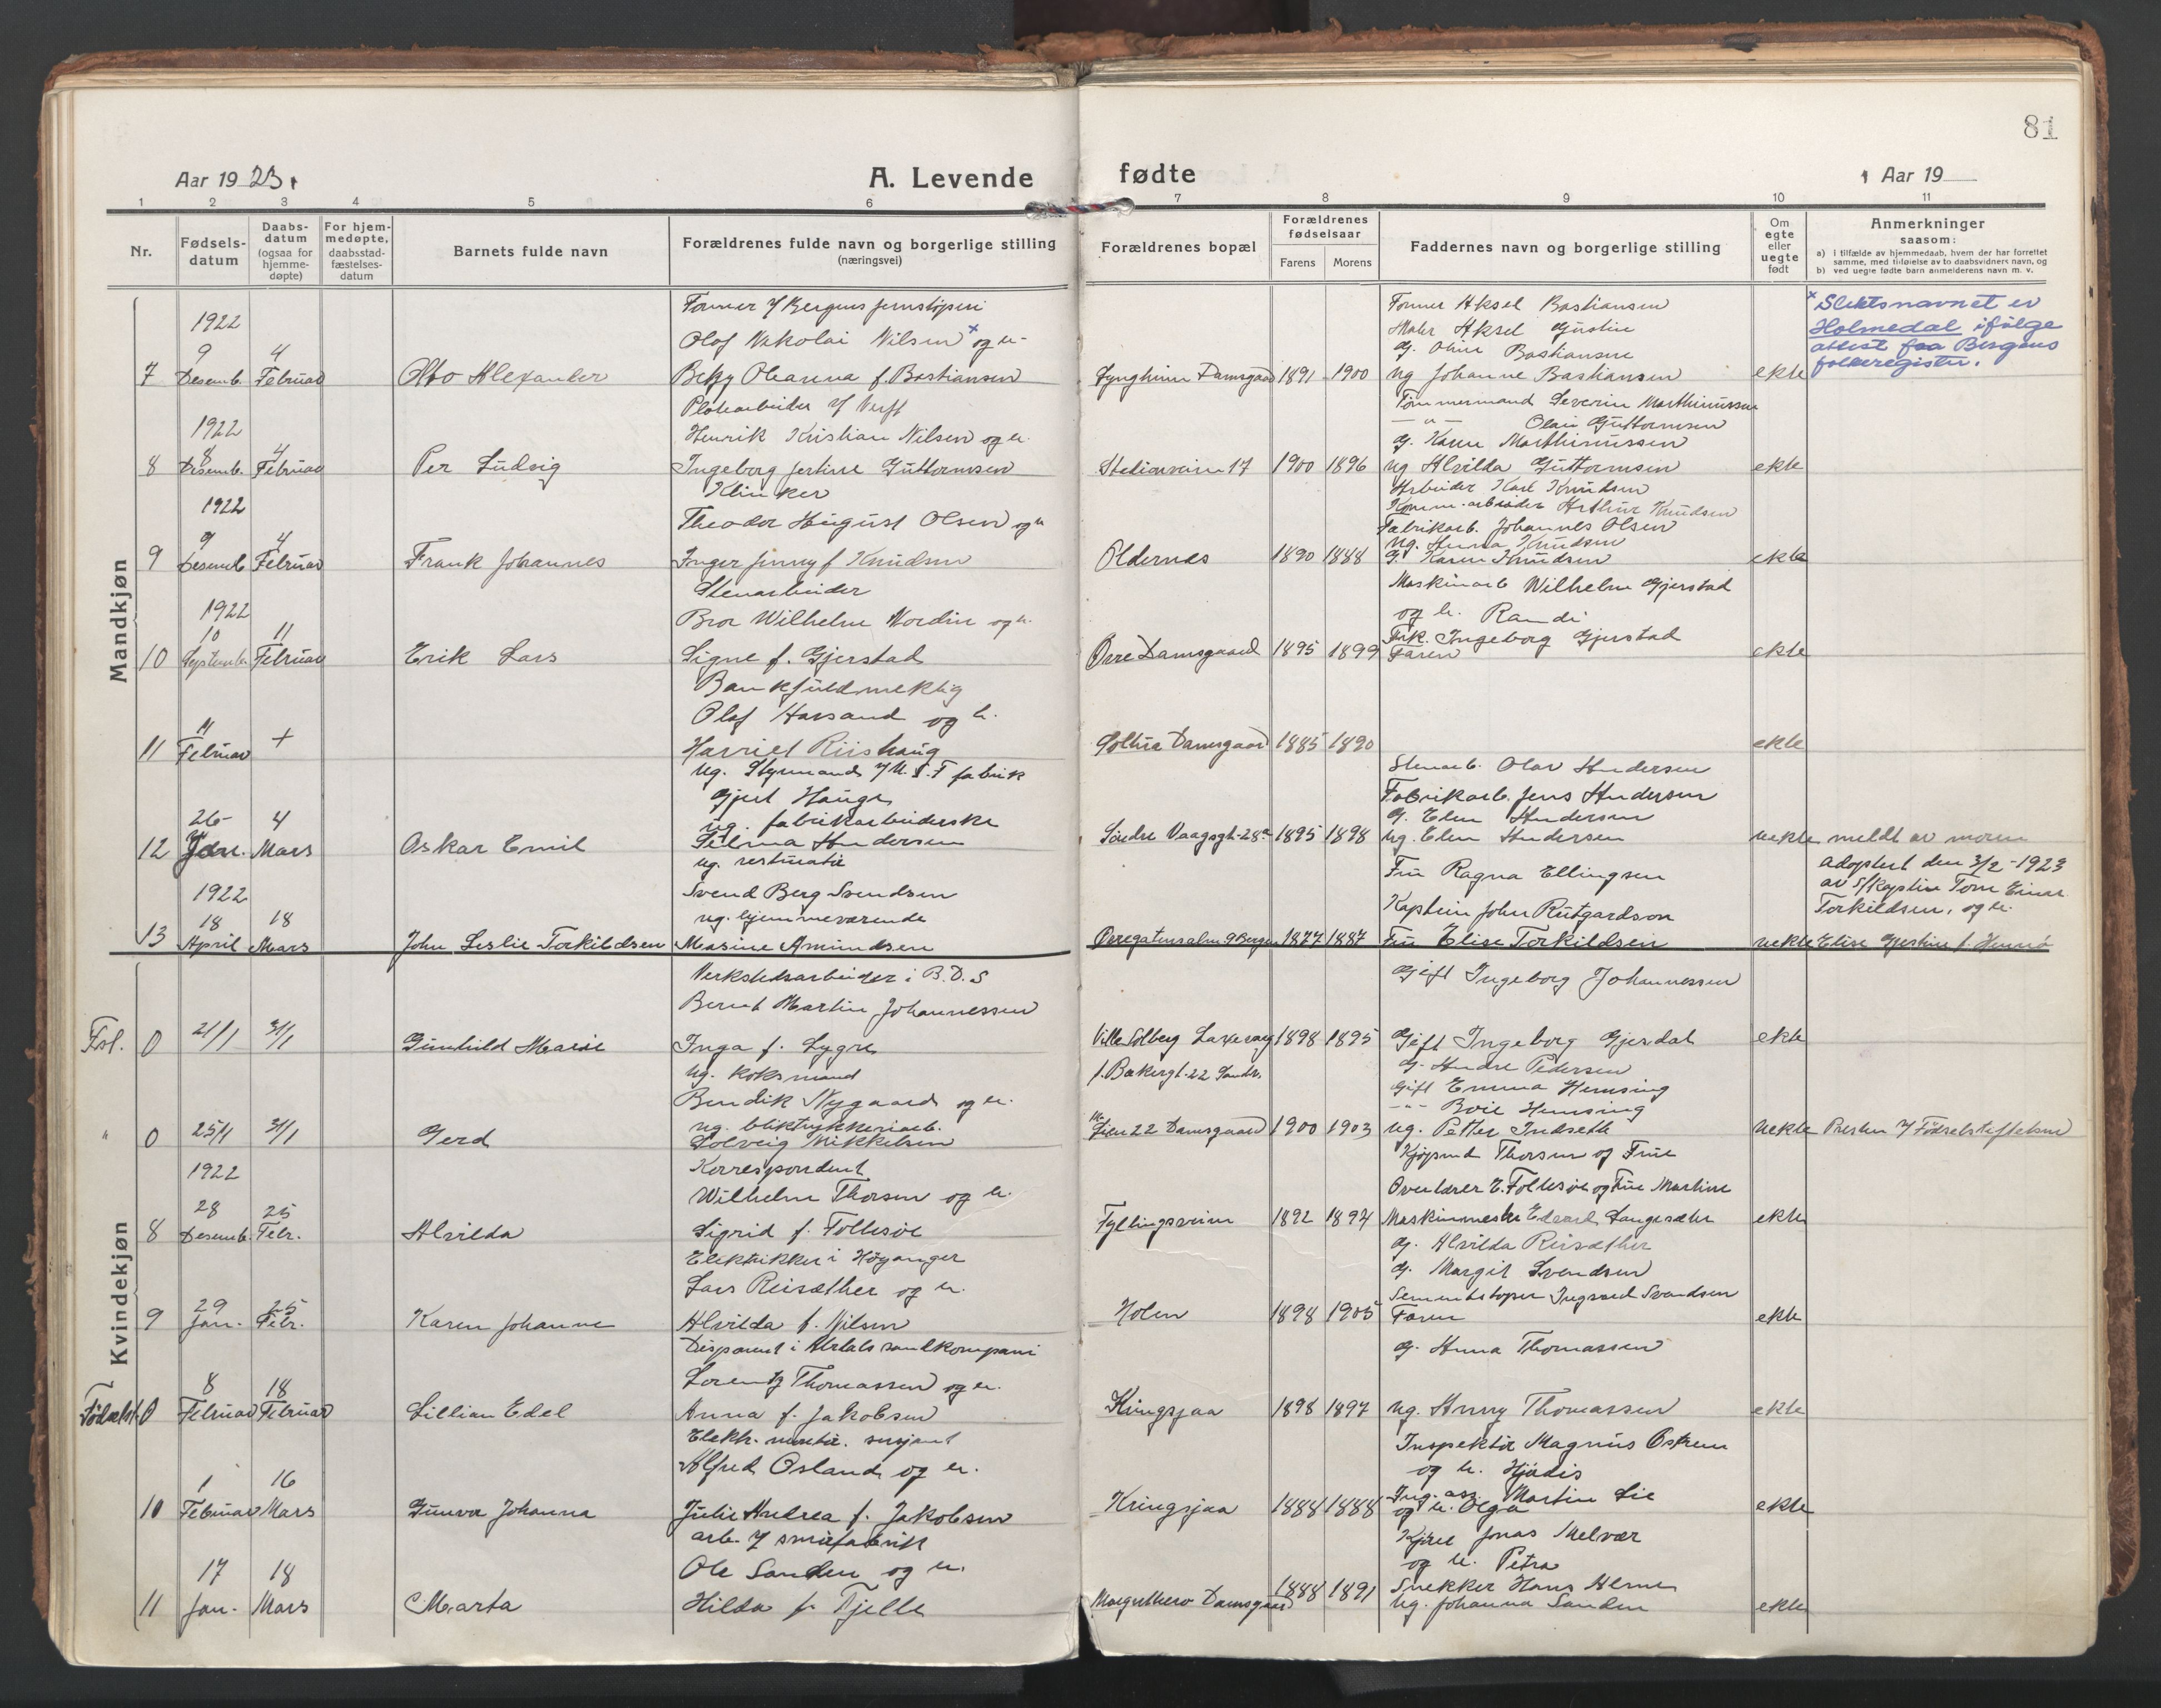 81
Aar 1923.
A. Levende fødte
Aar 19
1 2 3 4 5 6 7 8 9 10 11
Nr.
Fødsels-datum
Daabs-datum (ogsaa for hjemme-døpte)
For hjem-medøpte, daabsstad-fæstelses-datum
Barnets fulde navn
Forældrenes fulde navn og borgerlige stilling (næringsvei)
Forældrenes bopæl
Forældrenes fødselsaar
Farens Morens
Faddernes navn og borgerlige stilling
Om egte eller uegte født
Anmerkninger saasom:
a) i tilfælde av hjemmedaab, hvem der har forrettet samme, med tilføielse av to daabsvidners navn, og
b) ved uegte fødte barn anmelderens navn m. v.
Mandkjøn
7
1922
9 Desemb.
4 Februar
Otto Alexander
Former v/ Bergens jernstøperi
Olof Nikolai Nilsen x og h.
Betzy Oleanna f. Bastiansen
Lyngheim Damsgaard
1891 1900
Former Aksel Bastiansen
Maler Aksel Gustin
g. Oline Bastiansen
ug Johanne Bastiansen
ekte
x Slektsnavnet er
Holmedal ifølge
attest fra Bergens
folkeregister.
8
1922
8 Desemb.
4 Februar
Per Ludvig
Platearbeider v/ Verft
Henrik Kristian Nilsen og h.
Ingeborg Jertine Guttormsen
Stationsveien 17
1900 1896
Tømmermand Severin Marthinussen
—"— Olai Guttormsen
g. Karen Marthinussen
ug Alvilda Guttormsen
ekte
9
1922
9 Desemb.
4 Februar
Frank Johannes
Klinker
Theodor August Olsen og h
Inger Jenny f. Knudsen
Oldernes
1890 1888
Arbeider Karl Knudsen
Komm. arbeider Arthur Knudsen
Fabrikarb. Johannes Olsen
ug. Anna Knudsen
G. Karen Knudsen
ekte
10
1922
10 September
11 Februar
Erik Lars
Stenarbeider
Bror Wilhelm Nordin og h.
Signe f. Gjerstad
Øvre Damsgaard
1895 1899
Maskinarb Wilhelm Gjerstad
og h. Randi
Frk. Ingeborg Gjerstad
Faren
ekte
11
11 Februar
+
Bankfuldmektig
Olaf Aarsand og h.
Harriet Riishaug
Solhia Damsgaard
1885 1890
ekte
12
26- Jan.
4 Mars
Oskar Emil
ug. Styrmand
Gjert Hauge
ug. fabrikarbeiderske
Selma Andersen
Søndre Vaagsgt. 28a
1895 1898
Stenarb. Olav Andersen
Fabrikarb. Jens Andersen
G. Elen Andersen
ug. Elen Andersen
uekte
meldt av moren
13
1922
18 April
18 Mars
John Leslie Torkildsen
ug. restauratør
Svend Berg Svendsen
ug. hjemmeværende
Masine Amundsen
Øvregatensalm 9 Bergen
1877 1887
Fru Ragna Ellingsen
Kaptein John Rutgardson
Fru Elise Torkildsen
uekte
Adoptert den 3/2-1923
av S/Kaptein Tom Einar
Torkildsen, og h.
Elise Gjertine f. Hennø
Kvindekjøn
Fsl. 0
21/1
31/1
Gunhild Marie
Verkstedsarbeider i B.D.S
Bernt Martin Johannessen
Inga f. Lygre
Villa Solberg Laxevaag
1898 1895
Gift Ingeborg Johannessen
Gift Ingeborg Gjerdal
ekte
" 0
25/1
31/1
Gerd
ug. koksmand
Bendik Nygaard og h.
ug. bliktrykkeriarb.
Solveig Mikkelsen
f. Bakergt. 22 Sandv.
m. Lien 22 Damsgaard
1900 1903
G. Andre Pedersen
Gift Emma Hemsing
—"— Boie Hemsing
ug. Petter Indseth
uekte
Presten v/ Fødselstiftelsen
8
1922
28 Desemb.
25 Febr.
Alvilda
Korrespondent
Wilhelm Thorsen og h.
Sigrid f. Follesøe
Fyllingsveien
1892 1894
Kjøpmd Thorsen og Frue
Overlærer E. Follesøe og Frue Martine
Maskinmester Edvard Langesæter
ekte
9
29 Jan.
25 Febr.
Karen Johanne
Elektrikker i Høyanger
Lars Reisæther og h.
Alvilda f. Nilsen
Holen
1898 1905
g. Alvilda Reisæther
g. Margit Svendsen
Sementstøper Ingvard Svendsen
Faren
ekte
Fødselst. 0
8 Februar
18 Februar
Lillian Edel
Disponent i Arlals sandkompani
Lorentz Thomassen og h.
Anna f. Jakobsen
Kringsjaa
1898 1897
g. Anna Thomassen
ug. Anny Thomassen
ekte
10
1 Februar
16 Mars
Gunvor Johanna
Elektr. montør. sersjant
Alfred Osland og h.
Julie Andrea f. Jakobsen
Kringsjaa
1888 1888
Inspektør Magnus Østrem
og h. Hjødis
Ing. ass. Martin Lie
og h. Olga
ekte
11
17 Jan.
18 Mars
Marta
arb. v/ smørfabrikk
Ole Sanden og h.
Hilda f. Tjelle
Margrethero Damsgaard
1888 1891
Kjøre Jonas Melvær
og h. Petra
Snekker Hans Alme
ug. Johanna Sanden
ekte